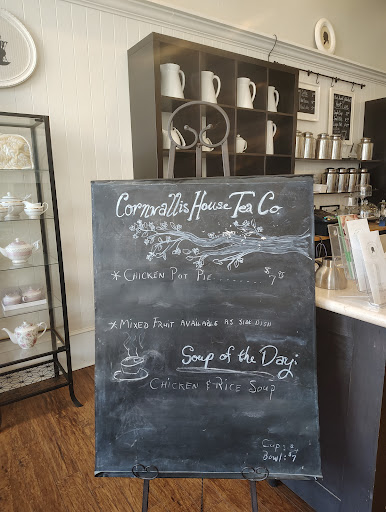 Cornwallis House Tea Co
* Chicken Pot Pie.......... $7.25
* Mixed Fruit available as side dish
Soup of the Day:
Chicken & Rice Soup
Cup:
Bowl: $7